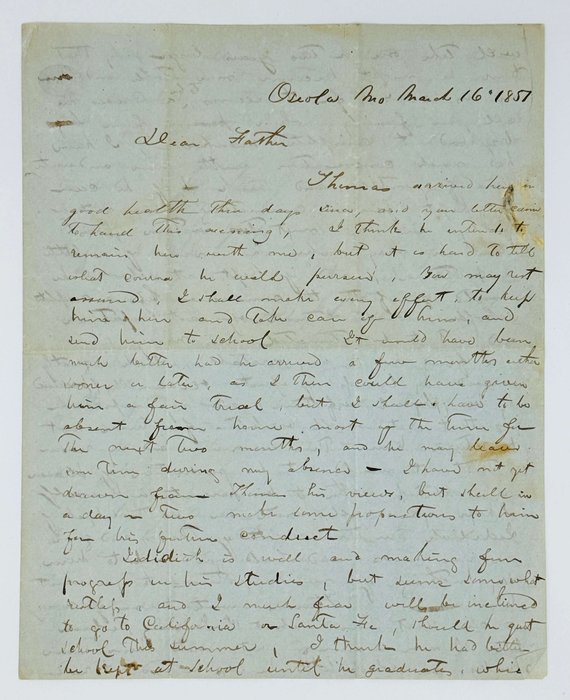 Osceola Mo March 16th 1851
Dear Father
Thomas arrived here in
good health three days since, and your letter came
to hand this evening, I think he intends to
remain here with me, but it is hard to tell
what course he will pursue, You may rest
assured, I shall make every effort, to keep
him here and take care of him, and
send him to school It would have been
much better had he arrived a few months either
sooner or later, as I then could have given
him a fair trial, but I shall have to be
absent from home most of the time for
the next two months, and he may leave
during my absence – I have not yet
drawn from Thomas his views, but shall in
a day or two make some propositions to him
for his future conduct
is well and making fine
progress in his studies, but seems somewhat
restless, and I much fear will be inclined
to go to California or Santa Fe, should he quit
school this summer, I think he had better
be kept at school until he graduates, which